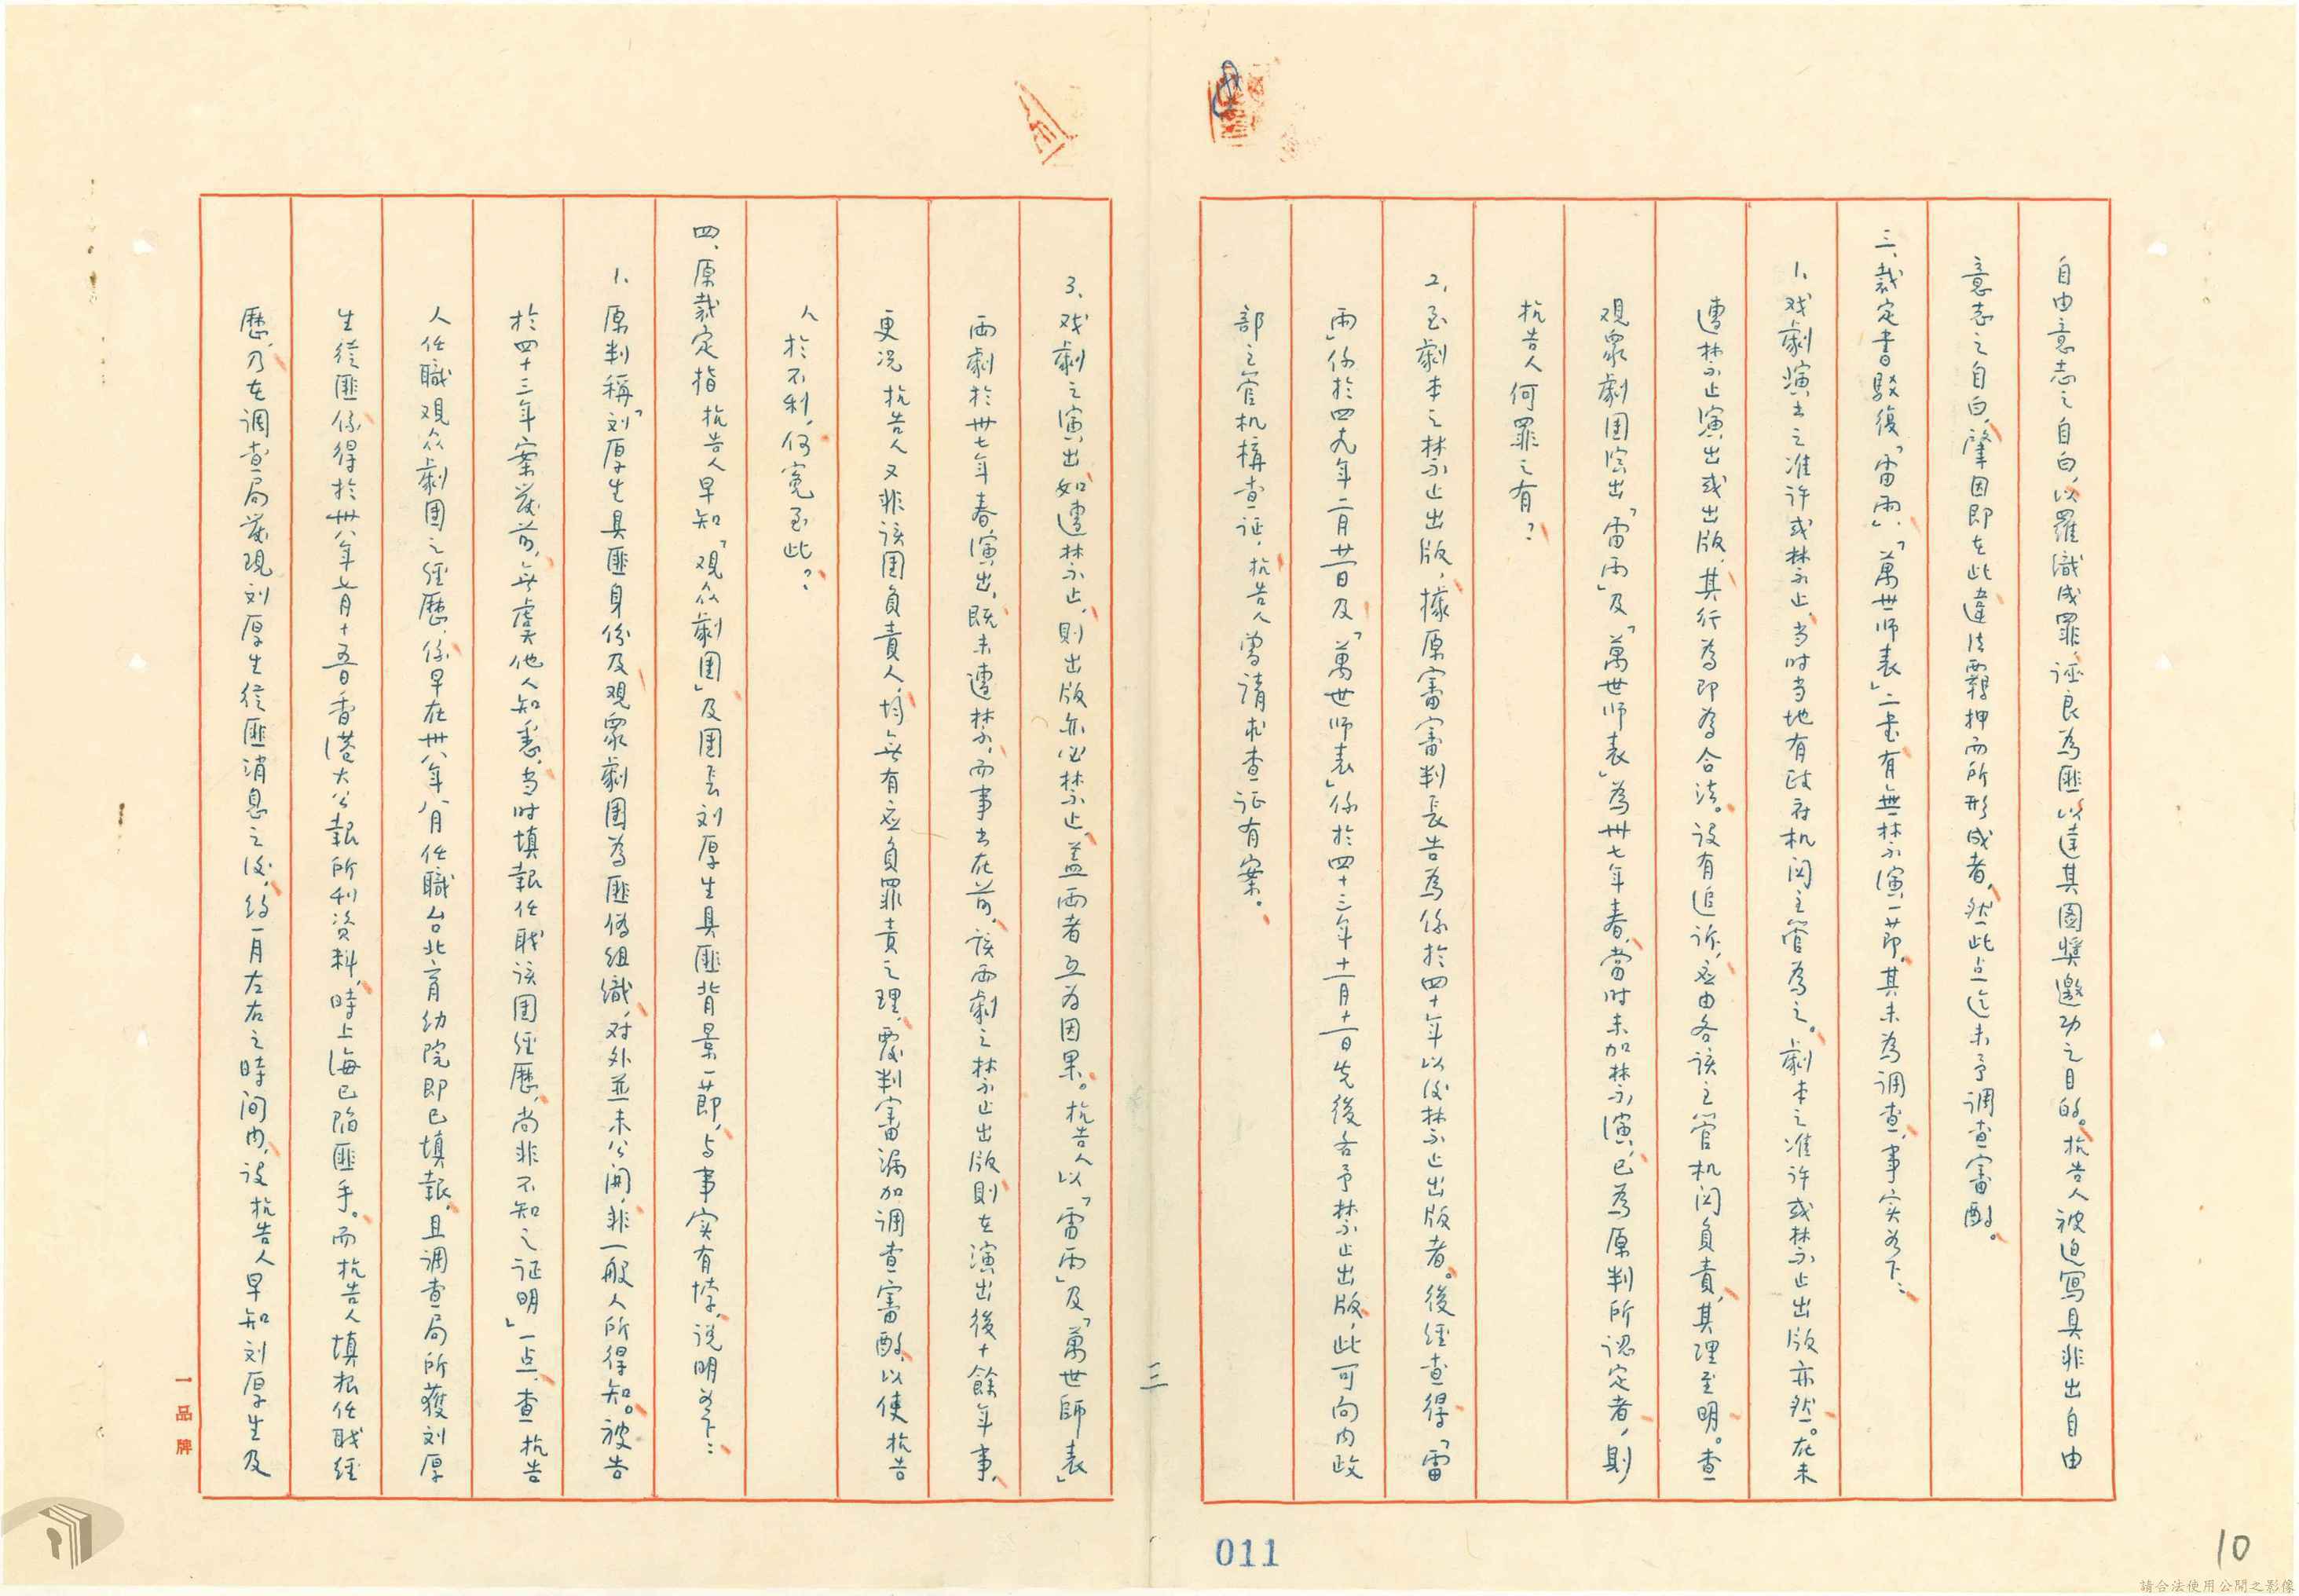 自由意志之自白，以羅織成罪，誣良為匪以達其圖獎邀功之目的。抗告人被迫寫具非出自由
意志之自白，肇因即在此違法羈押而所形成者，然此点迄未予調查審酌。
三、裁定書駁復「雷雨」、「萬世师表」二書有無禁演一节，其未為調查，事实如下：
1、戏劇演出之准許或禁止，当时当地有政府机関主管為之。劇本之准許或禁止出版亦然。在未
遭禁止演出或出版，其行為即為合法。设有追诉，应由各該主管机関負責，其理至明。查
观眾劇团演出「雷雨」及「萬世师表」為卅七年春，當时未加禁演，已為原判所認定者，則
抗告人何罪之有？
2、至劇本之禁止出版，據原審審判長告為係於四十年以後禁止出版者。後經查得「雷
雨」係於四九年二月廿一日及「萬世师表」係於四十二年十二月十一日先後各予禁止出版，此可向內政
部主管机構查证，抗告人曾请求查证有案。
3、戏劇之演出如遭禁止，則出版亦必禁止，盖两者互为因果。抗告人以「雷雨」及「萬世師表」
两劇於卅七年春演出，既未遭禁，而事出在前，该两劇之禁止出版則在演出後十餘年事，
更况抗告人又非该团負責人，均無有应負罪責之理，覆判審漏加調查審酌，以使抗告
人於不利，何冤至此？
四、原裁定指抗告人早知「观众劇团」及团長刘厚生具匪背景一節，与事实有悖，说明如下：
1、原判稱「刘厚生具匪身份及观眾劇团為匪偽組織，对外並未公開，非一般人所得知。被告
於四十三年案發前，無虞他人知悉，当时填報任职该团經歷，尚非不知之证明」一点，查抗告
人任職观众劇团之經歷，係早在卅八年八月任職台北育幼院即已填報，且調查局所獲刘厚
生從匪係得於卅八年七月十五日香港大公報所刊资料，時上海已陷匪手。而抗告人填报任职經
歷，乃在调查局發現刘厚生從匪消息之後，約一月左右之時间內，设抗告人早知刘厚生及
三
一品牌
011
10
請合法使用公開之影像